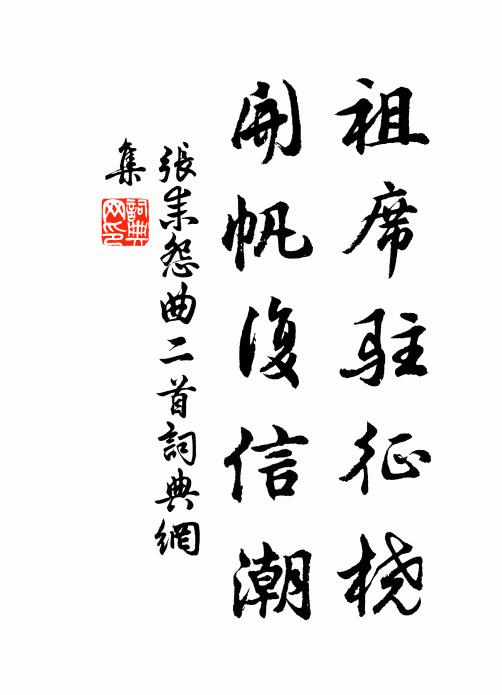 祖席駐征橈
開帆復信潮
張耒怨曲二首詞典網
集
詞典
网印